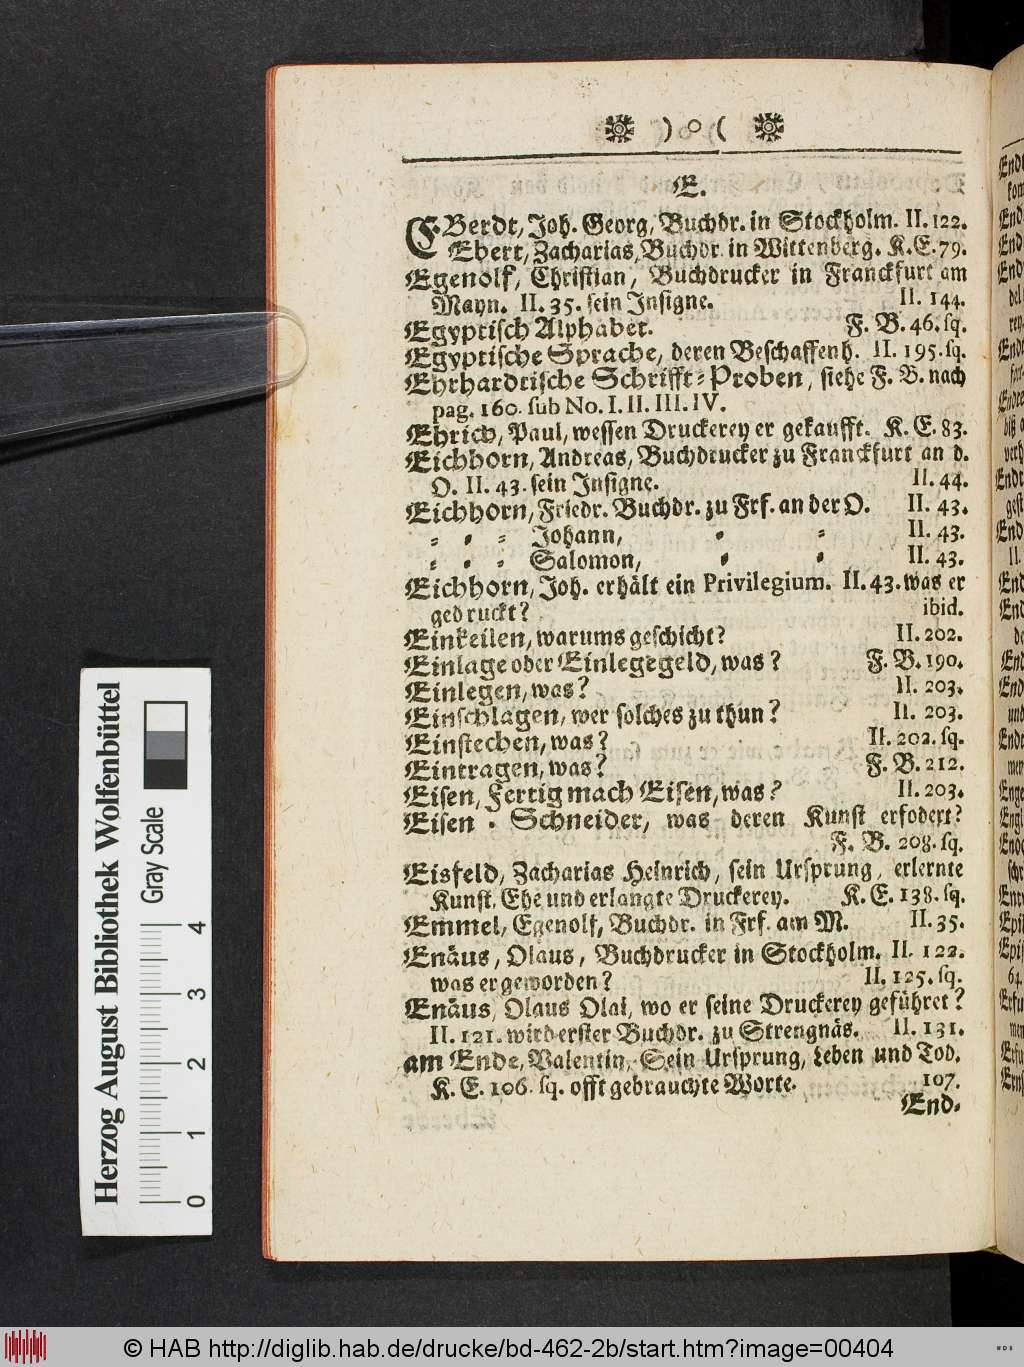 ) o (
E.
EBerdt, Joh. Georg, Buchdr. in Stockholm. II. 122.
Ebert, Zacharias, Buchdr. in Wittenberg. K. E. 79.
Egenolf, Christian, Buchdrucker in Franckfurt am
Mayn. II. 35. sein Insigne. II. 144.
Egyptisch Alphabet. F. B. 46. sq.
Egyptische Sprache, deren Beschaffenh. II. 195. sq.
Ehrhardtische Schrifft-Proben, siehe F. B. nach
pag. 160. sub No. I. II. III. IV.
Ehrich, Paul, wessen Druckerey er gekaufft. K. E. 83.
Eichhorn, Andreas, Buchdrucker zu Franckfurt an d.
O. II. 43. sein Insigne. II. 44.
Eichhorn, Friedr. Buchdr. zu Frf. an der O. II. 43.
- - - Johann, - - II. 43.
- - - Salomon, - - II. 43.
Eichhorn, Joh. erhält ein Privilegium. II. 43. was er
gedruckt? ibid.
Einkeilen, warums geschicht? II. 202.
Einlage oder Einlegegeld, was? F. B. 190.
Einlegen, was? II. 203.
Einschlagen, wer solches zu thun? II. 203.
Einstechen, was? II. 202. sq.
Eintragen, was? F. B. 212.
Eisen, Fertig mach Eisen, was? II. 203.
Eisen - Schneider, was deren Kunst erfodert?
F. B. 208. sq.
Eisfeld, Zacharias Heinrich, sein Ursprung, erlernte
Kunst, Ehe und erlangte Druckerey. K. E. 138. sq.
Emmel, Egenolf, Buchdr. in Frf. am M. II. 35.
Enäus, Olaus, Buchdrucker in Stockholm. II. 122.
was er geworden? II. 125. sq.
Enäus, Olaus Olai, wo er seine Druckerey geführet?
II. 121. wird erster Buchdr. zu Strengnäs. II. 131.
am Ende, Valentin, Sein Ursprung, Leben und Tod.
K. E. 106. sq. offt gebrauchte Worte. 107.
End-
Herzog August Bibliothek Wolfenbüttel
Gray Scale
0 1 2 3 4
© HAB http://diglib.hab.de/drucke/bd-462-2b/start.htm?image=00404